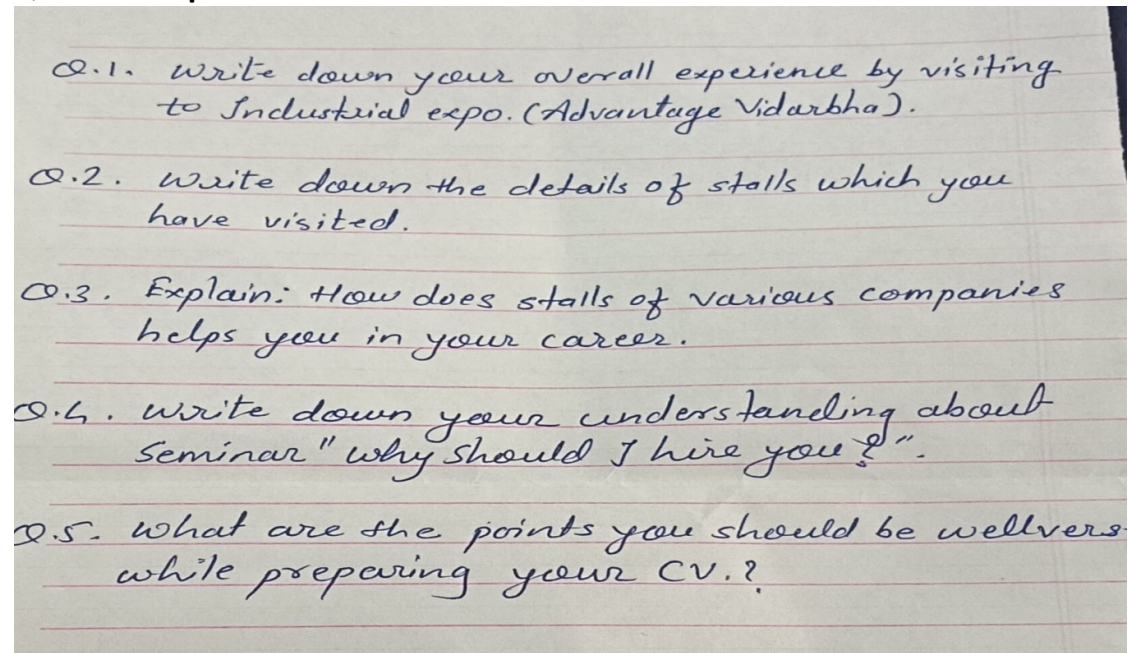 Q.1. Write down your overall experience by visiting
to Industrial expo. (Advantage Vidarbha).
Q.2. Write down the details of stalls which you
have visited.
Q.3. Explain: How does stalls of various companies
helps you in your career.
Q.4. Write down your understanding about
Seminar "why should I hire you?".
Q.5. What are the points you should be wellvers
while preparing your CV.?